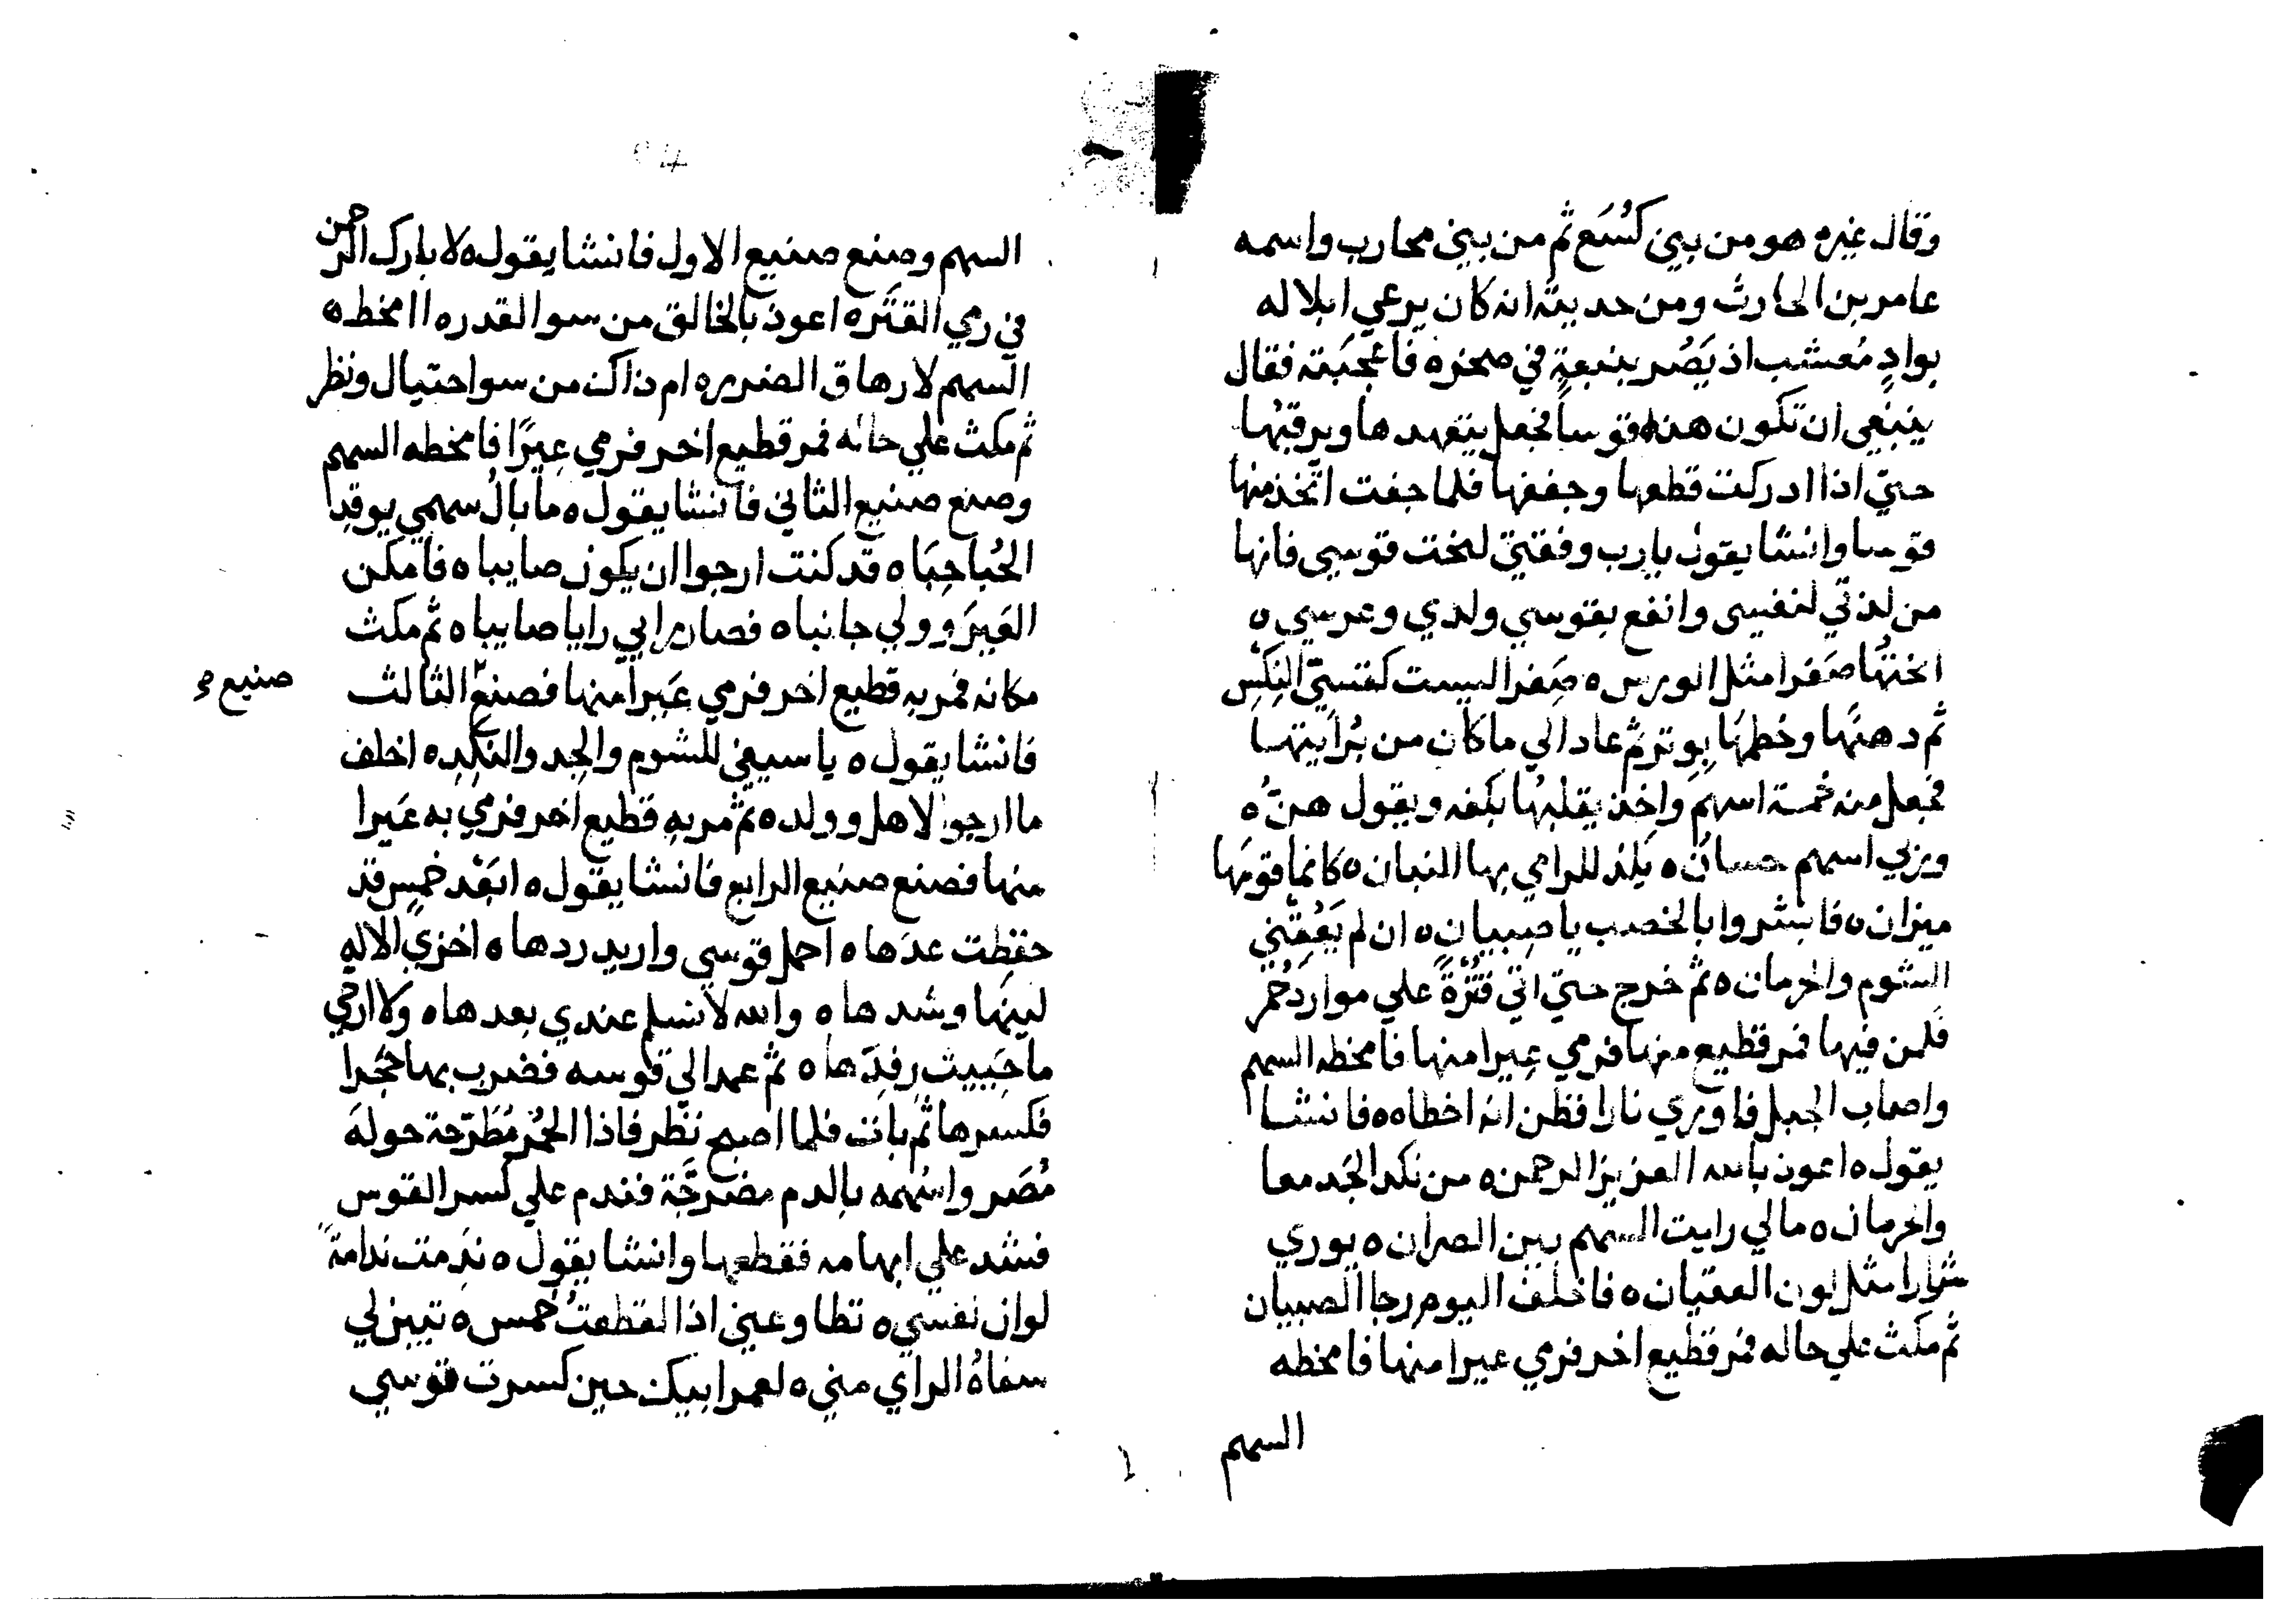 وقال غيره هو من بني كُسَع ثم من بني محارب واسمه
عامر بن الحارث ومن حديثه انه كان يرعي ابلا له
بوادٍ مُعشب اذ بَصُر بنبعةٍ في صخره فاعجبَته فقال
ينبغي ان تكون هذه قوسا فجعل يتعهدها ويرقبُها
حتي اذا ادركت قطعها وجففها فلما جفت اتخذ منها
قوسا وانشا يقول يا رب وفقني لنحت قوسي فانها
من لذتي لنفسي وانفع بقوسي ولدي وعرسي ه
انحتُها صَفرا مثل الورس ه صَفرا ليست كقسيّ النِكس
ثم دهنَها وخطمَها بِوتر ثم عاد الي ما كان من بُرايتها
فجعل منه خمسة اسهم واخذ يقلبُها بكفه ويقول هنّ ه
وربي اسهم حسانُ ه يَلذ للرامي بها البنان ه كانما قومَها
ميزان ه فابشروا بالخصب يا صبيان ه ان لم يَعُقني
الشوم والحرمان ه ثم خرج حتي اتي قُتْرةً علي موارد حُمر
فكمن فيها فمر قطيع منها فرمي عيرا منها فامخطه السهم
واصاب الجبل فاوري نارا فظن انه اخطاه ه فانشا
يقول ه اعوذ بالله العزيز الرحمن ه من نكد الجَد معا
والحرمان ه مالي رايت السهم بين الصران ه يوري
شرارا مثل لون العقيان ه فاخلف اليوم رجا الصبيان
ثم مكث علي حاله فمر قطيع اخر فرمي عيرا منها فامخطه
السهم
السهم وصنع صنيع الاول فانشا يقول ه لا بارك الرحمن
في رمي القتَره اعوذ بالخالق من سو القدره اامخط ه
السهم لارهاق الضرره ام ذاك من سو احتيال ونظر
ثم مكث علي حاله فمر قطيع اخر فرمي عِيرًا فامخطه السهم
وصنع صنيع الثاني فانشا يقول ه ما بالُ سهمي يوقد
الحُباحِبَا ه قد كنت ارجوا ان يكون صايبا ه فامكن
العَيرَ وولي جانبا ه فصار رايي رايا صايبا ه ثم مكث
مكانه فمر به قطيع اخر فرمي عَيرا منها فصنع الثالث
صنيع
فانشا يقول ه يا سيفي للشوم والجد والنكِدِ ه اخلف
ما ارجوا لاهل وولد ه ثم مر به قطيع اخر فرمي به عَيرا
منها فصنع صنيع الرابع فانشا يقول ه ابَعْد خمسٍ قد
حفظت عدَها ه احمل قوسي واريد ردها ه اخزي الاله
لينَها وشدها ه والله لا تسلم عندي بعدها ه ولا ارجي
ما حَييت رِفدَها ه ثم عمد الي قوسه فضرب بها حَجَرا
فكسرها ثم بات فلما اصبح نظر فاذا الحُمُر مُطَرّحة حولَه
مُصَر واسْهمه بالدم مضرجَّة فندم علي كسر القوس
فشد علي ابهامه فقطعها وانشا يقول ه نَدِمت ندامةً
لو ان نفسي ه تطاوعني اذا لقطعتُ خمس ه تبين لي
سفاهُ الراي مني ه لعمر ابيك حين كسرت قوسي